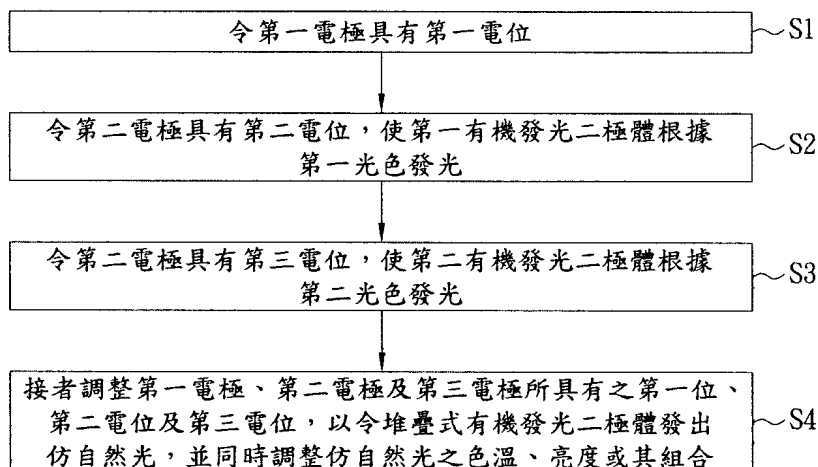 令第一電極具有第一電位
S1
令第二電極具有第二電位，使第一有機發光二極體根據
第一光色發光
S2
令第二電極具有第三電位，使第二有機發光二極體根據
第二光色發光
S3
接者調整第一電極、第二電極及第三電極所具有之第一位、
第二電位及第三電位，以令堆疊式有機發光二極體發出
仿自然光，並同時調整仿自然光之色溫、亮度或其組合
S4